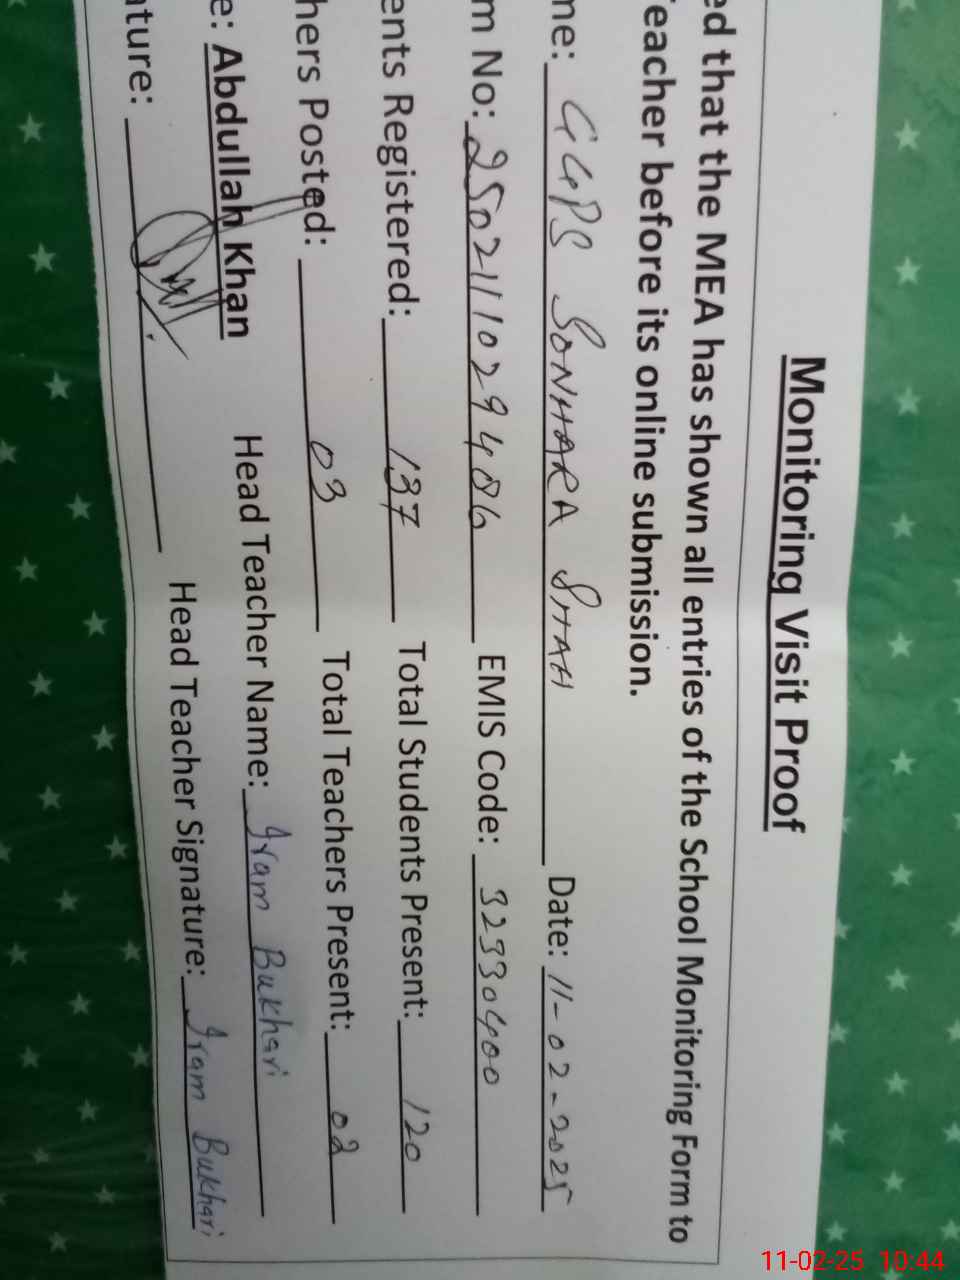 Monitoring Visit Proof
ed that the MEA has shown all entries of the School Monitoring Form to
Teacher before its online submission.
me: GGPS SONHARA SHAH Date: 11-02-2025
m No: 25021110294086 EMIS Code: 32330400
ents Registered: 137 Total Students Present: 120
hers Posted: 03 Total Teachers Present: 02
e: Abdullah Khan Head Teacher Name: Iram Bukhari
ature: Head Teacher Signature: Iram Bukhari
11-02-25 10:44